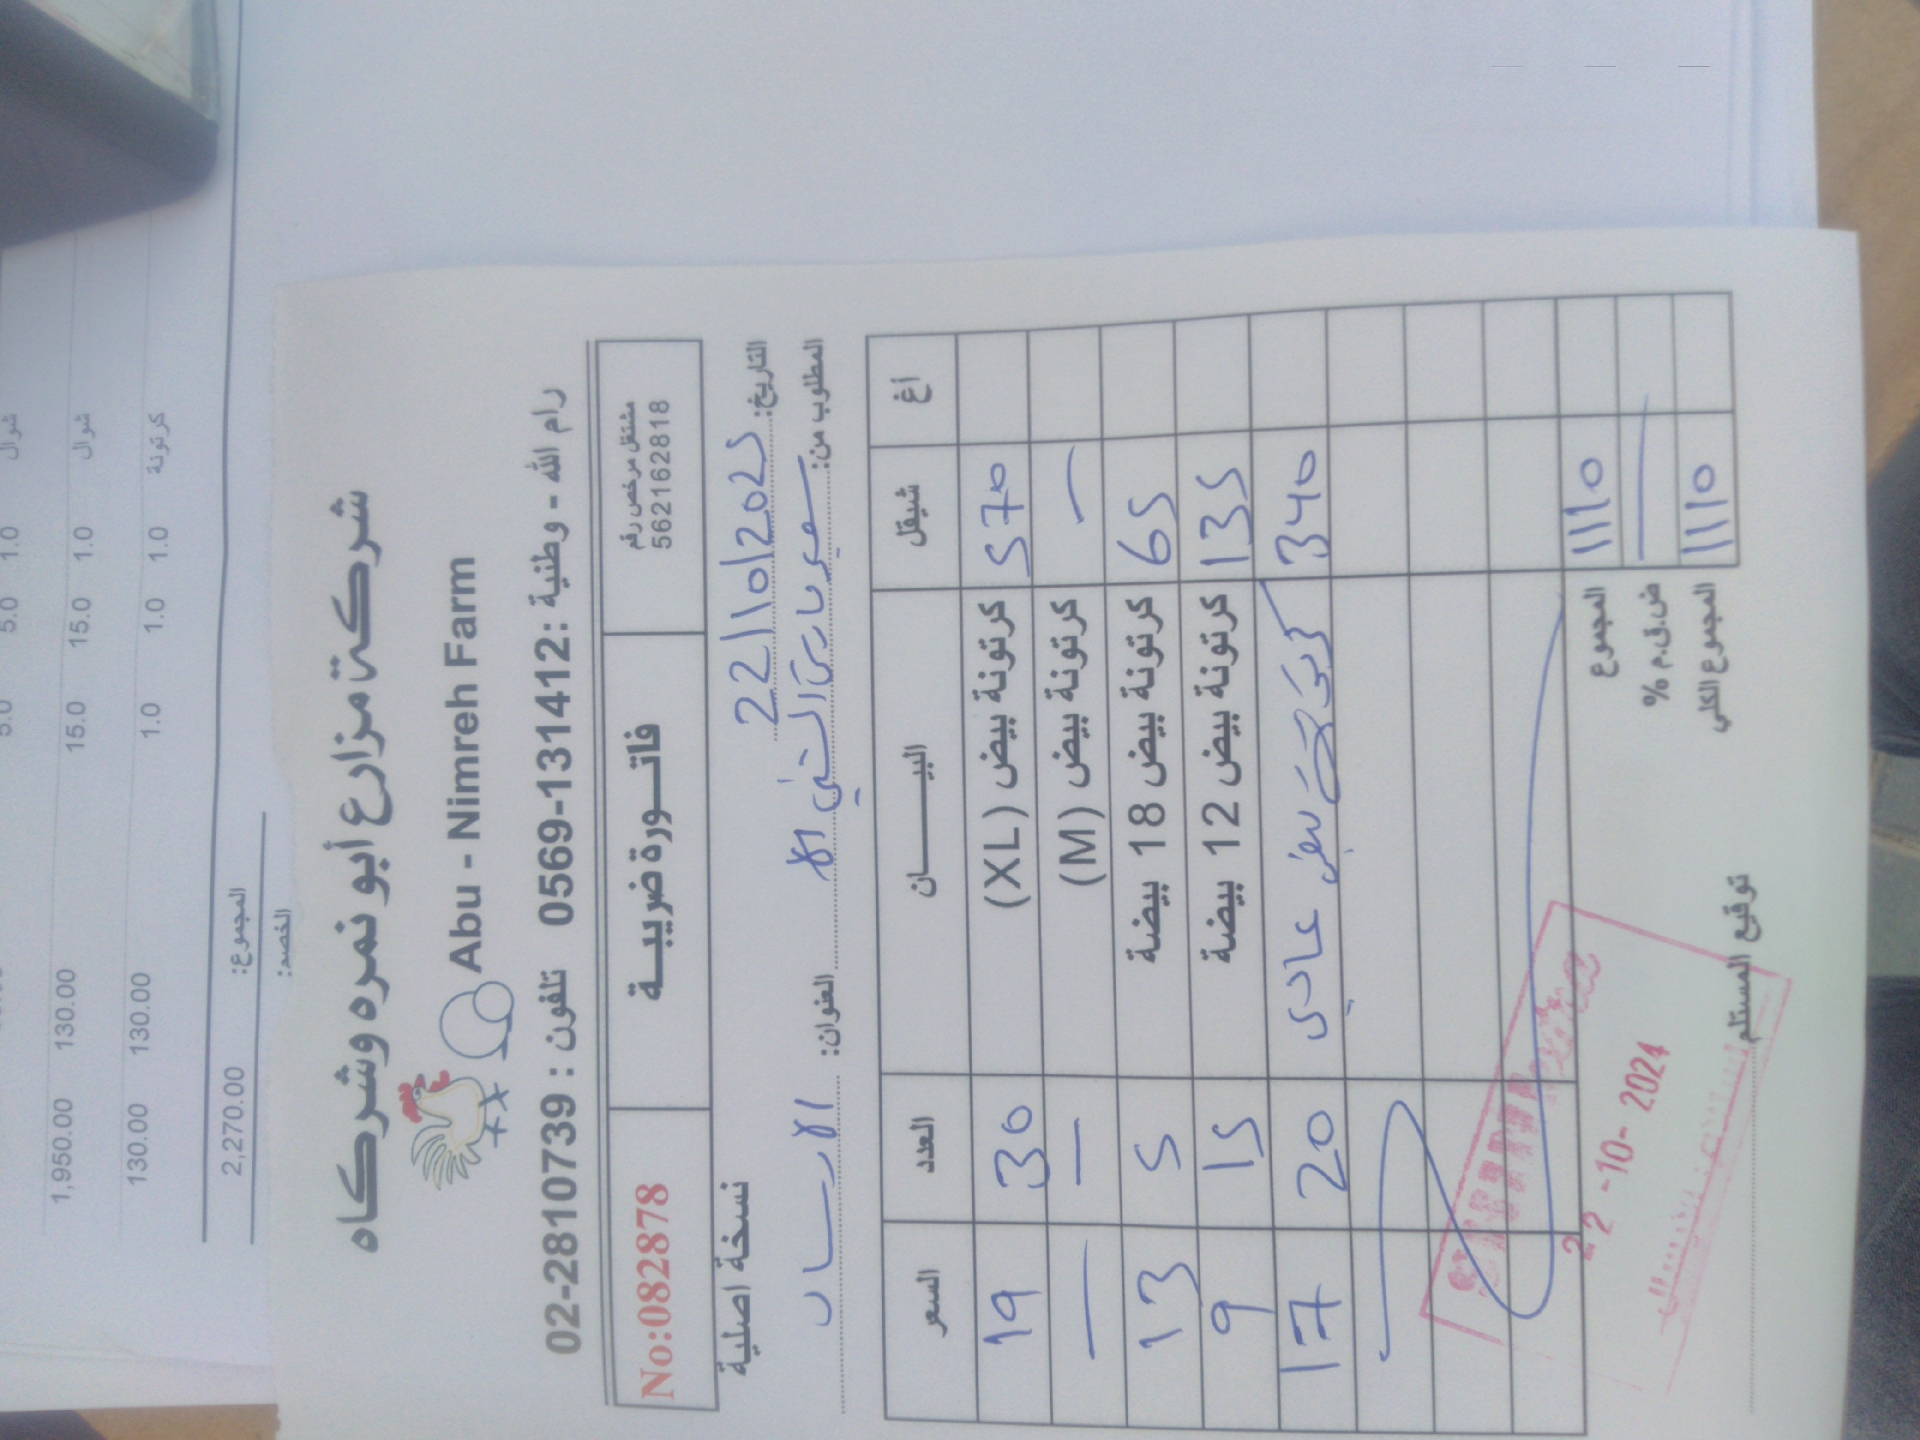 شوال 1.0 5.0 5.0
شوال 1.0 15.0 15.0 130.00 1,950.00
كرتونة 1.0 1.0 1.0 130.00 130.00
المجموع: 2,270.00
الخصم:
شركة مزارع أبو نمره وشركاه
Abu - Nimreh Farm
رام الله - وطنية : 0569-131412 تلفون : 02-2810739
مشتغل مرخص رقم
562162818
فاتـــورة ضريبيـــة
No:082878
التاريخ: 22/10/2025
نسخة اصلية
المطلوب من: سوبر ماركت
العنوان: الارسال
أغ شيقل البيـــــــان العدد السعر
570 كرتونة بيض (XL) 30 19
— كرتونة بيض (M) — —
65 كرتونة بيض 18 بيضة 5 13
135 كرتونة بيض 12 بيضة 15 9
340 بيض عادي 20 17
1110 المجموع
— ض.ق.م %
1110 المجموع الكلي
22 -10- 2024
توقيع المستلم